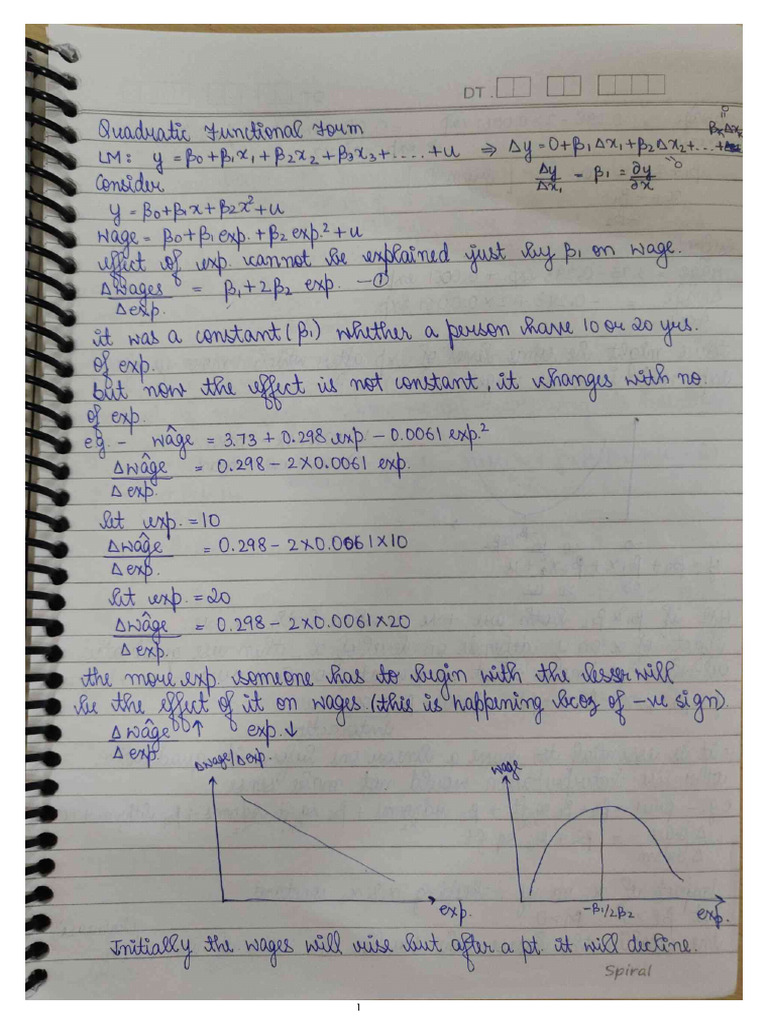 DT.
Quadratic Functional Form
LM: y = β0+β1x1+β2x2+β3x3+....+u ⇒ Δy=0+β1Δx1+β2Δx2+...+
Consider
Δy/Δx1 = β1 = ∂y/∂x
y = β0+β1x+β2x²+u
wage = β0+β1 exp.+β2 exp.²+u
effect of exp. cannot be explained just by β1 on wage.
Δwages/Δexp. = β1+2β2 exp. —①
it was a constant (β1) whether a person have 10 or 20 yrs.
of exp.
but now the effect is not constant, it changes with no
of exp.
eg. - wâge = 3.73 + 0.298 exp - 0.0061 exp.²
Δwâge/Δexp. = 0.298 - 2×0.0061 exp.
let exp. = 10
Δwâge/Δexp. = 0.298 - 2×0.0061×10
let exp. = 20
Δwâge/Δexp. = 0.298 - 2×0.0061×20
the more exp. someone has to begin with the lesser will
be the effect of it on wages. (this is happening bcoz of -ve sign)
Δwâge/Δexp. ↑ exp.↓
Δwage/Δexp.
exp.
wage
-β1/2β2
exp.
Initially the wages will rise but after a pt. it will decline.
Spiral
1